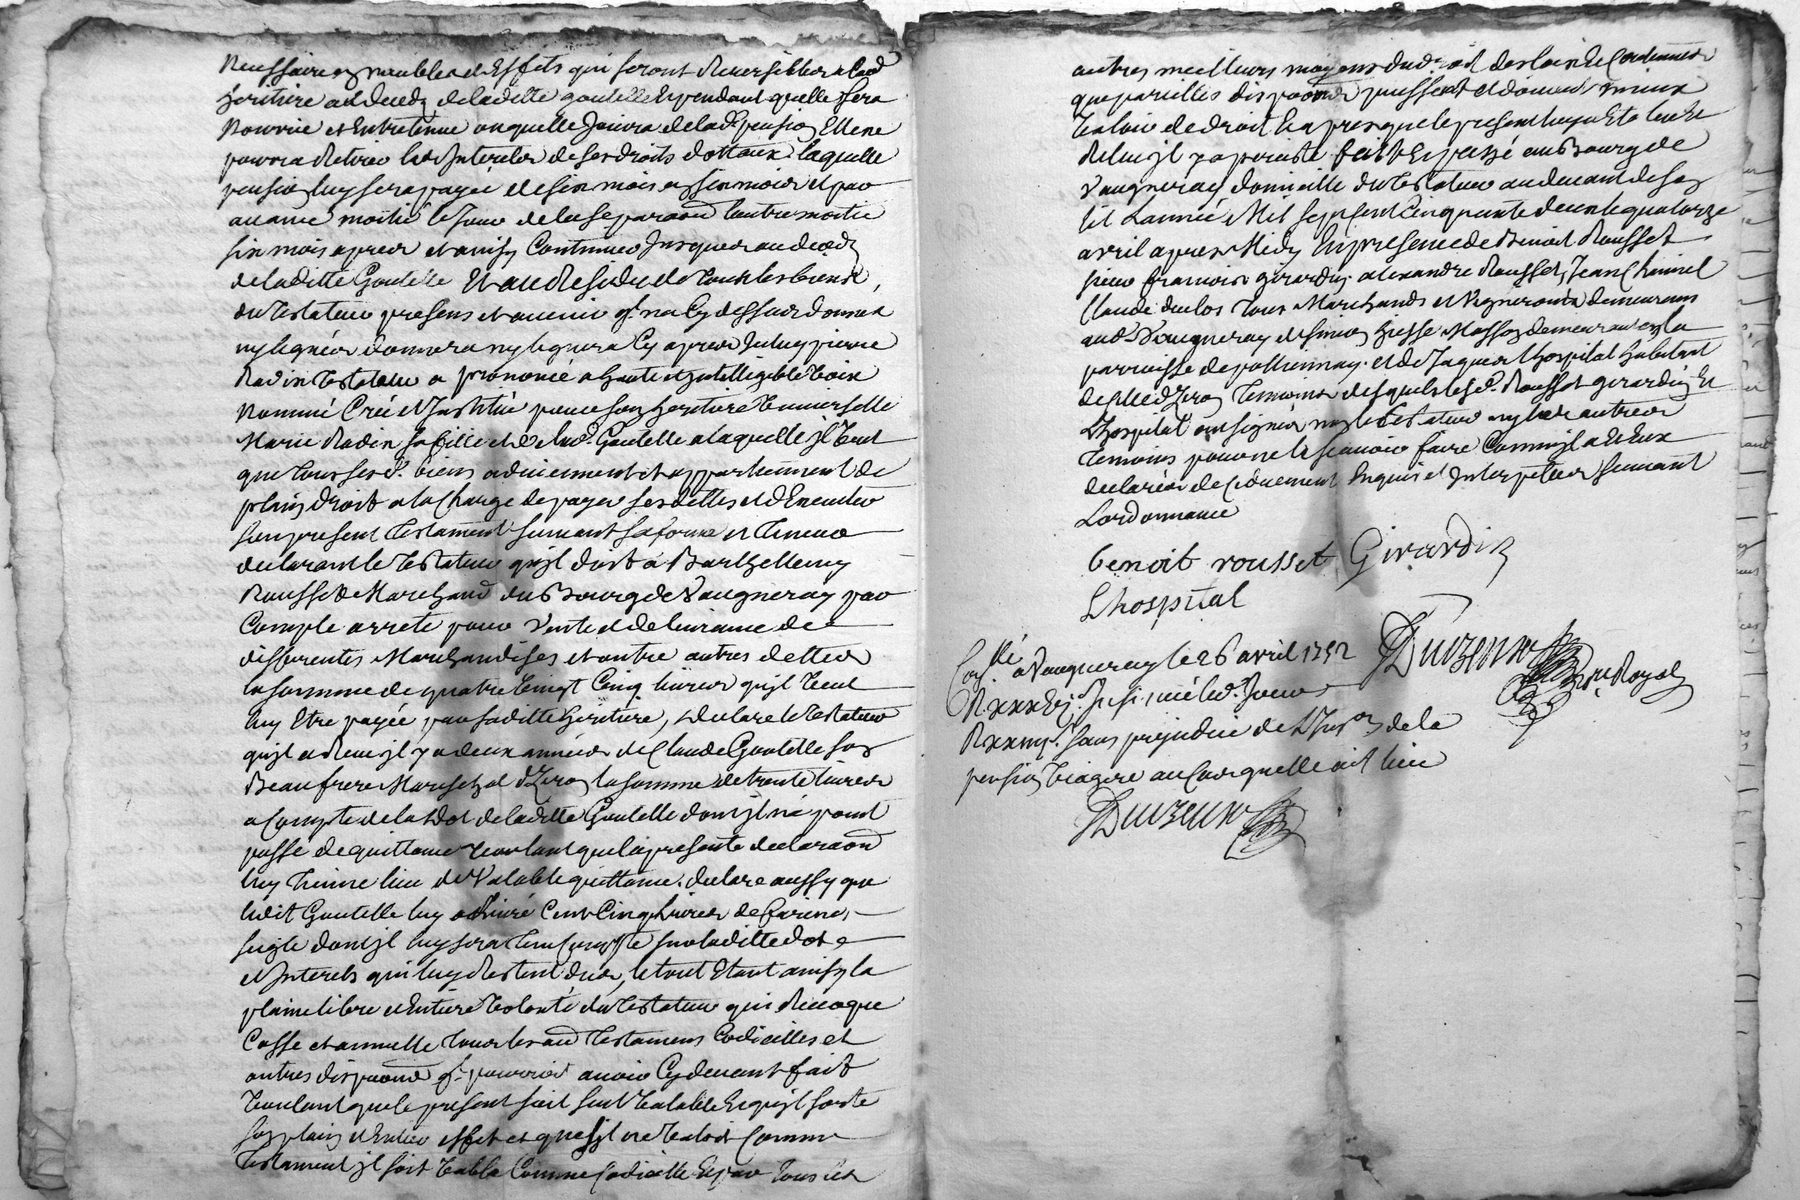 necessaire en meubles et Effets qui seront Reversibles a lad
heritiere au deceds de laditte goutelle Et pendant quelle sera
Nourrie et Entretenue ou quelle Jouira de lad. pension Elle ne
pourra Retirer les Interets de ses droits dottaux laquelle
pension luy sera payée de six mois en six mois et par
avance moitié le Jour de la separaõn lautre moitie
six mois apres et ainsy Continuer Jusques au deceds
de laditte Goutelle Et au Residu de tous les biens
du testateur presens et avenir qu'il na Cy dessus donnés
ny legués donnera ny leguera Cy apres Iceluy pierre
Radix testateur a prononcé a haute et Intelligible voix
Nommé Créé et Institué pour son heritiere Universelle
Marie Radix sa fille et de lad. Goutelle a laquelle jl veut
que tous sesd. biens adviennent et appartiennent de
plain droit a la Charge de payer ses dettes et d'Executer
son present testament suivant sa forme et teneur
declarant le testateur qu'jl doit a Barthellemy
Rousset Marchand du Bourg de Vaugneray par
Compte arreté pour Vente et delivrance de
differentes Marchandises et autre autres dettes
la somme de quatre vingt Cinq livres qu'jl veut
luy Etre payée par saditte heritiere, declare le testateur
qu'jl a Reçu jl y a deux années de Claude Goutelle son
Beaufrere Mareschal d'Izeron la somme de trente livres
a Compte de la Dot de laditte Goutelle dont jl n'a point
passé de quittance voulant que la presente declaraõn
luy tienne lieu de Valable quittance. declare aussy que
ledit Goutelle luy a livré Cent Cinq livres de farine
seigle dont jl luy sera tenu Compte sur laditte dot
et Interets qui luy Restent dus, le tout Etant ainsy la
plaine libre et Entiere volonté du testateur qui Revoque
Casse et annulle tous les aũ testamens Codicilles et
autres disposoñs qu'jl pourroit avoir Cy devant fait
voulant que le present soit seul valable Et qu'jl sorte
son plain et Entier effet et que s'jl ne valoit Comme
testament jl soit valble Comme Codicille Et par tous les
autres meilleurs moyens du droit des loix et Coutumes
que pareilles disposoñs puissent et doivent mieux
valoir de droit Et apres que le present luy a Eté lu et
Relu jl y a persisté. fait et passé au Bourg de
Vaugneray domicille du testateur au devant de son
lit L'année Mil sept cent Cinquante deux le quatorze
avril apres Midy En presence de Benoit Rousset
sieur francois girardin alexandre Rousset, Jean Chainel
Claude duclos tous Marchands et Vignerons demeurans
aud. Vaugneray et simon Giesse Masson demeurant en la
parroisse de pollionnay. et de Jaques Lhospital habitant
de ville d'Izeron temoins desquels lesd. Rousset girardin Et
Lhospital ont signés non le testateur ny les autres
temoins pour ne le scavoir faire Comme jl a Et Eux
declarés de Ce duement Enquis et Interpellés suivant
Lordonnance
benoit rousset Girardin
Lhospital
Con.llé a Vaugneray le 26 avril 1752
sans prejudice de L'Ins.on de la
pension viagere au Cas quelle ait lieu